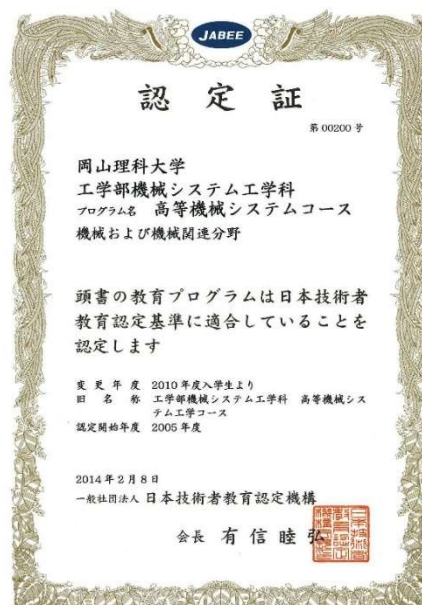 JABEE
認定証
第00200号
岡山理科大学
工学部機械システム工学科
プログラム名 高等機械システムコース
機械および機械関連分野
頭書の教育プログラムは日本技術者
教育認定基準に適合していることを
認定します
変更年度 2010年度入学生より
旧名称 工学部機械システム工学科 高等機械シス
テム工学コース
認定開始年度 2005年度
2014年2月8日
一般社団法人 日本技術者教育認定機構
会長 有信睦弘